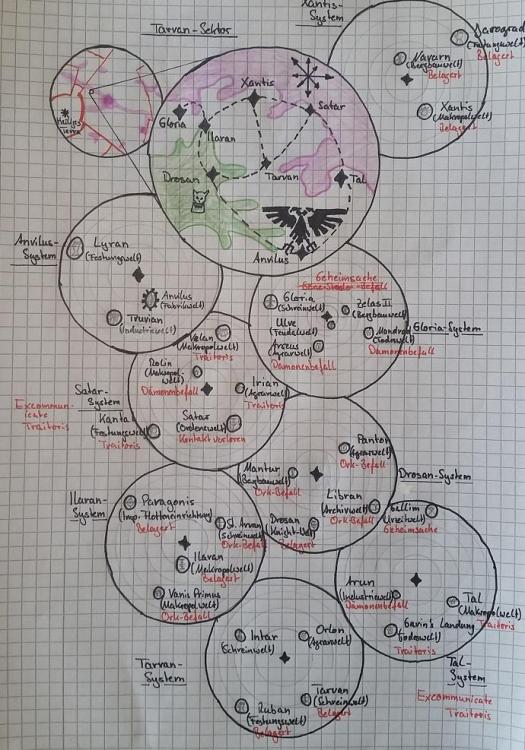 Xantis-
System
Tarvan-Sektor
Navarn
(Bergbauwelt)
Belagert
Belagert
Xantis
(Makropolwelt)
Belagert
Heilige
Terra
Xantis
Gloria
Satar
Ilaran
Drosan
Tarvan
Tal
Anvilus
Anvilus-
System
Lyran
(Festungswelt)
Anvilus
(Fabrikwelt)
Truvian
(Industriewelt)
Geheimsache
Gloria
(Schreinwelt)
Zelas II
(Bergbauwelt)
Ulve
(Feudalwelt)
(Todeswelt)
Dämonenbefall
(Agrarwelt)
Dämonenbefall
Gloria-System
Satar-
System
Excommuni-
cate
Traitoris
Velan
(Makropolwelt)
Traitoris
Rolin
(Makropol-
welt)
Dämonenbefall
Irian
(Agrarwelt)
Traitoris
Kanta
(Festungswelt)
Traitoris
Satar
(Ordenswelt)
Kontakt verloren
Drosan-System
Panton
(Agrarwelt)
Ork-Befall
Mantur
(Bergbauwelt)
Ork-Befall
Libran
(Archivwelt)
Ork-Befall
Drosan
(Knight-Welt)
Belagert
Ilaran-
System
Paragonis
(Imp. Flotteneinrichtung)
Belagert
(Schreinwelt)
Ork-Befall
Ilaran
(Makropolwelt)
Belagert
Vanis Primus
(Makropolwelt)
Ork-Befall
Geheimsache
Arun
(Industriewelt)
Dämonenbefall
Tal
(Makropolwelt)
Traitoris
Gavin's Landung
(Todeswelt)
Traitoris
Tal-
System
Excommunicate
Traitoris
Tarvan-
System
Intar
(Schreinwelt)
Orlon
(Agrarwelt)
Tarvan
(Schreinwelt)
Belagert
Ruban
(Festungswelt)
Belagert